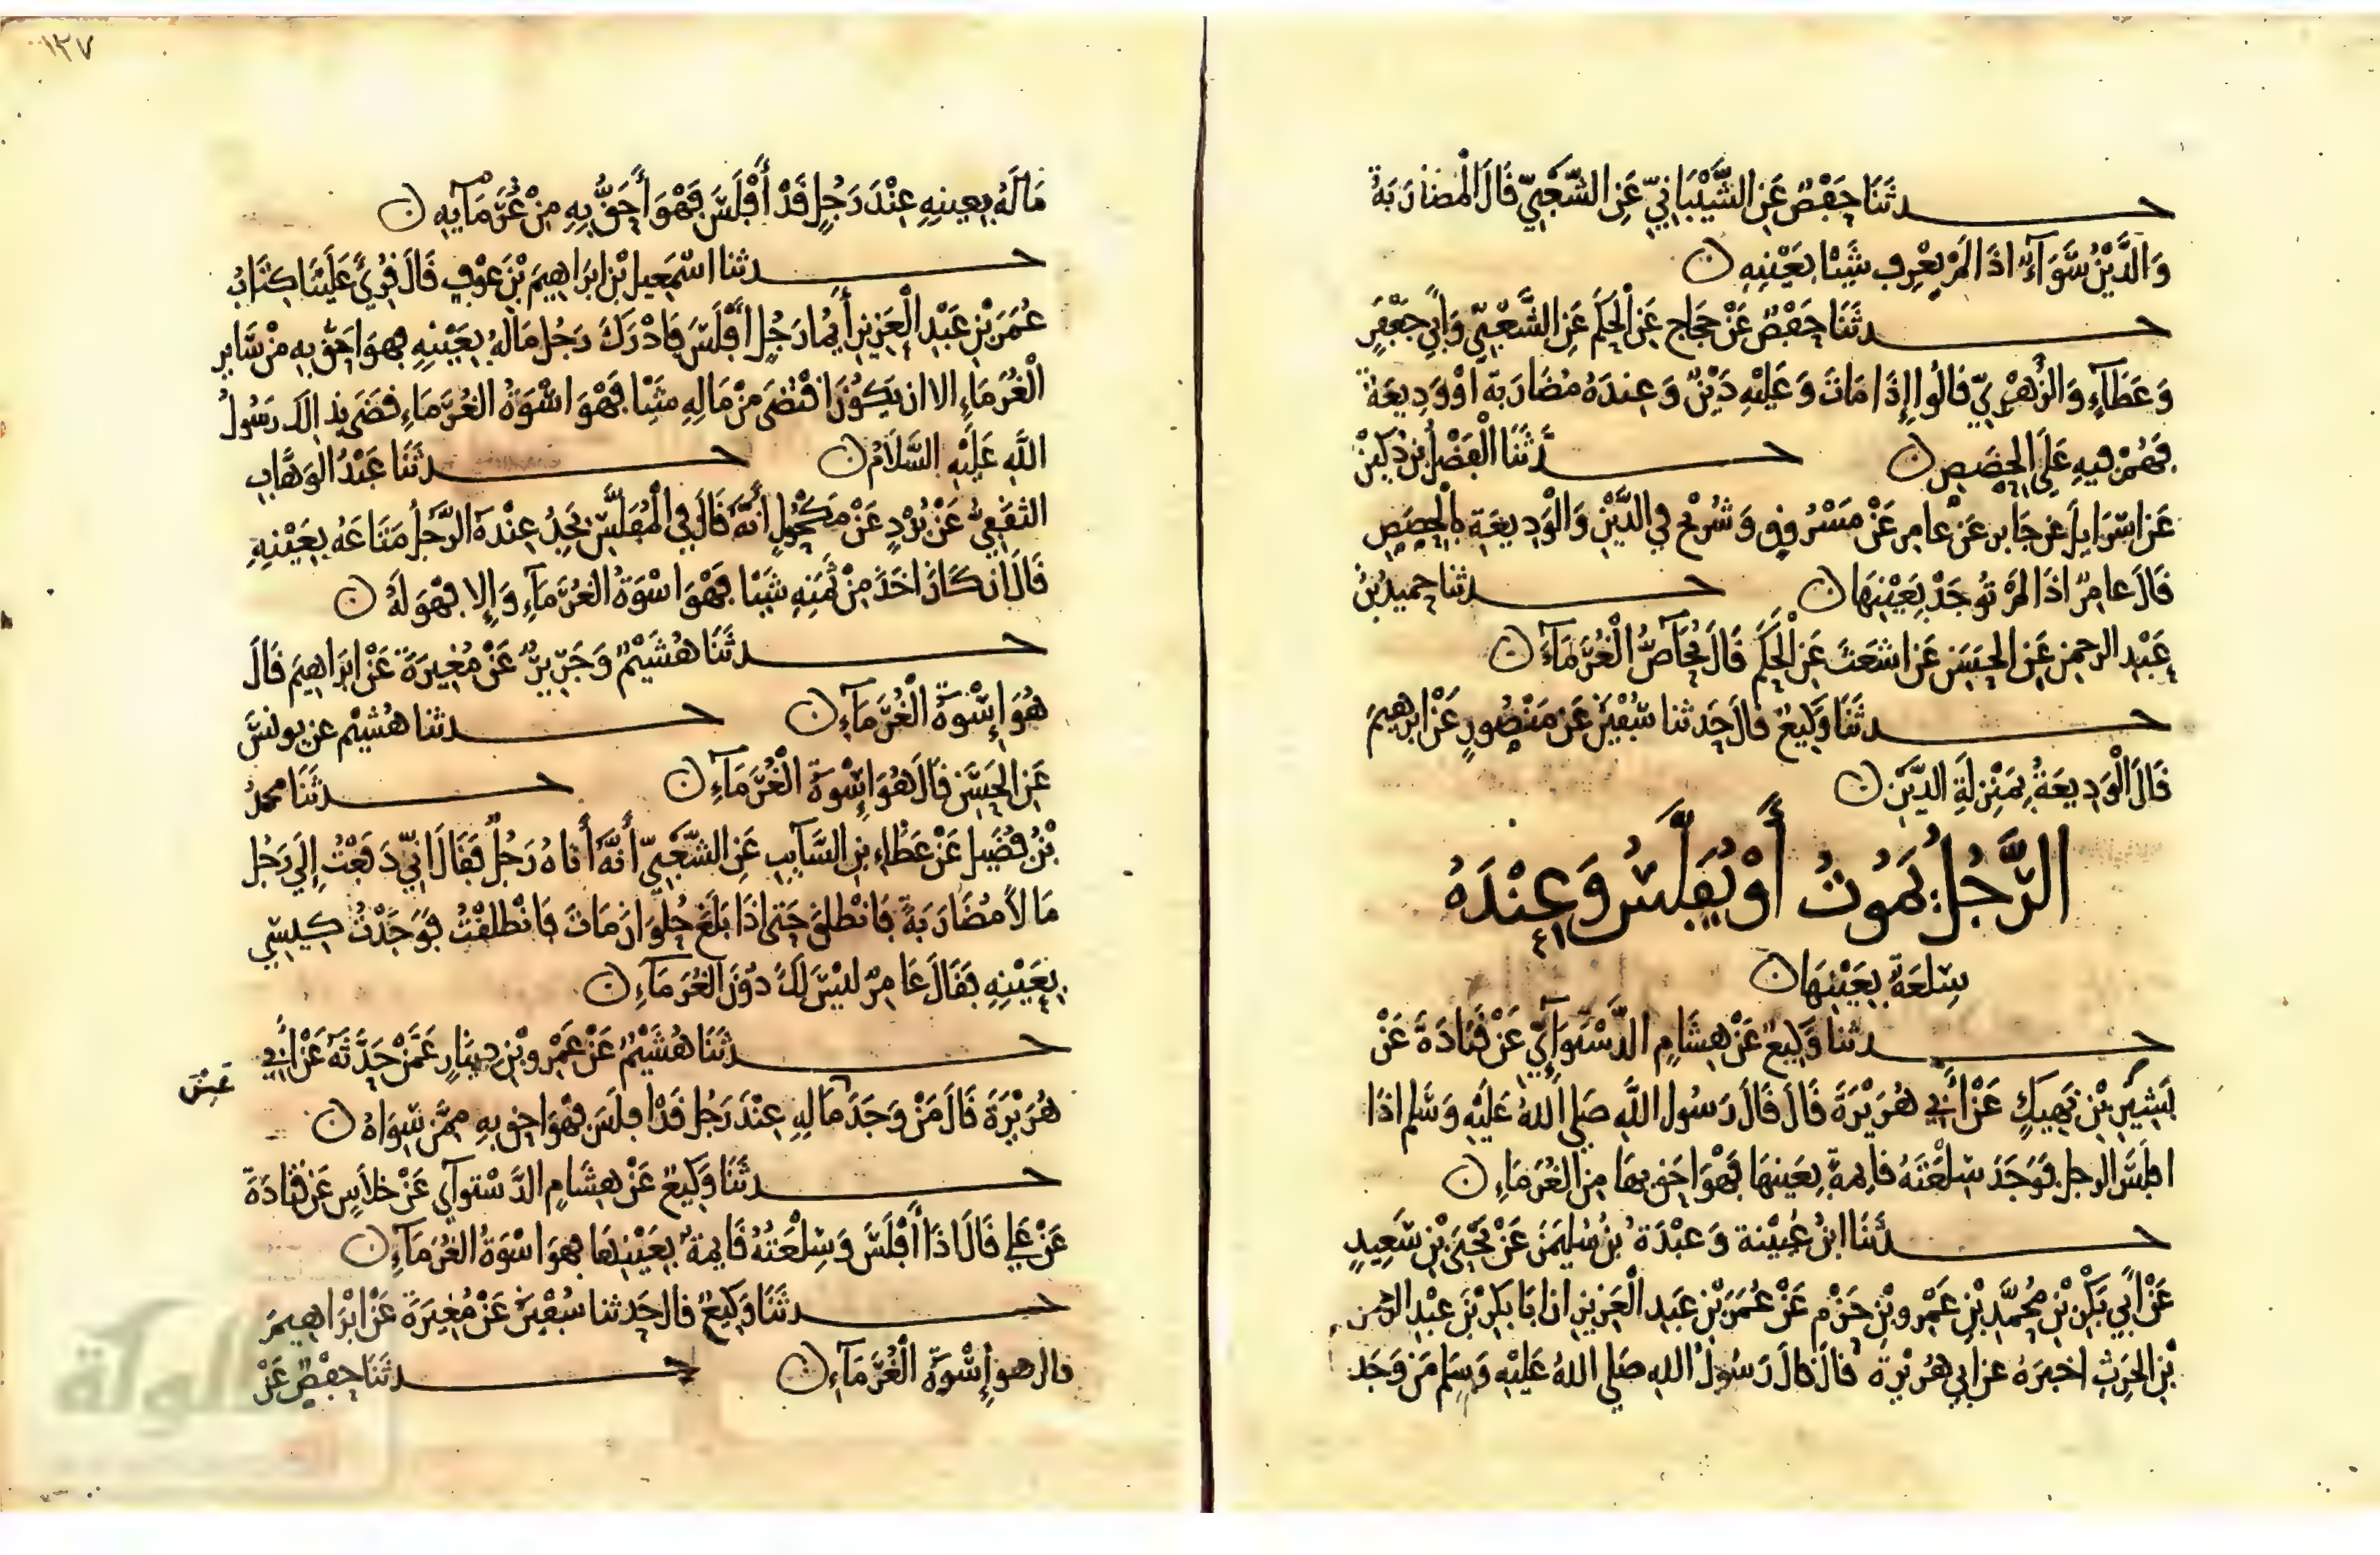 حدثنا حفص عن الشيباني عن الشعبي قال المضاربة
والدين سواء اذا لم يعرف شيئا بعينه ن
حدثنا حفص عن حجاج عن الحكم عن الشعبي وابي جعفر
وعطاء والزهري قالوا إذا مات وعليه دين وعنده مضاربة او وديعة
فهم فيه على الحصص ن حدثنا الفضل بن دكين
عن اسرايل عن جابر عن عامر عن مسروق وشريح في الدين والوديعة بالحصص
قال عامر اذا لم توجد بعينها ن حدثنا حميد بن
عبد الرحمن عن الحسن عن اشعث عن الحكم قال يحاص الغرماء ن
حدثنا وكيع قال حدثنا سفين عن منصور عن ابرهيم
قال الوديعة بمنزلة الدين ن
الرجل يموت أو يفلس وعنده
سلعة بعينها ن
حدثنا وكيع عن هشام الدستوآئي عن قتادة عن
بشير بن نهيك عن أبي هريرة قال قال رسول الله صلى الله عليه وسلم اذا
افلس الرجل فوجد سلعته قايمة بعينها فهو احق بها من الغرماء ن
حدثنا ابن عيينة وعبدة بن سليمن عن يحيى بن سعيد
عن أبي بكر بن محمد بن عمرو بن حزم عن عمر بن عبد العزيز ان ابا بكر بن عبد الرحمن
بن الحرث اخبره عن ابي هريرة قال قال رسول الله صلى الله عليه وسلم من وجد
١٣٧
ماله بعينه عند رجل قد أفلس فهو أحق به من غرمآيه ن
حدثنا اسمعيل بن ابراهيم بن عوف قال قرئ علينا كتاب
عمر بن عبد العزيز أيما رجل أفلس فادرك رجل ماله بعينه فهو احق به من ساير
الغرماء الا ان يكون اقتضى من ماله شيئا فهو اسوة الغرماء قضى بذلك رسول
الله عليه السلام ن حدثنا عبد الوهاب
الثقفي عن برد عن مكحول أنه قال في المفلس يجد عنده الرجل متاعه بعينه
قال ان كان اخذ من ثمنه شيئا فهو اسوة الغرماء وإلا فهو له ن
حدثنا هشيم وجرير عن مغيرة عن ابراهيم قال
هو إسوة الغرماء ن حدثنا هشيم عن يونس
عن الحسن قال هو إسوة الغرماء ن حدثنا محمد
بن فضيل عن عطاء بن السايب عن الشعبي أنه أتاه رجل فقال اني دفعت إلى رجل
مالا مضاربة فانطلق حتى اذا بلغ حلوان مات فانطلقت فوجدت كيسي
بعينه فقال عامر ليس لك دون الغرماء ن
حدثنا هشيم عن عمرو بن دينار عمن حدثه عن أبي
هريرة قال من وجد ماله عند رجل قد افلس فهو احق به ممن سواه ن
عين
حدثنا وكيع عن هشام الدستوآي عن خلاس عن قتادة
عن علي قال اذا أفلس وسلعته قايمة بعينها فهو اسوة الغرماء ن
حدثنا وكيع قال حدثنا سفين عن مغيرة عن ابراهيم
قال هو إسوة الغرماء ن حدثنا حفص عن
الألوكة